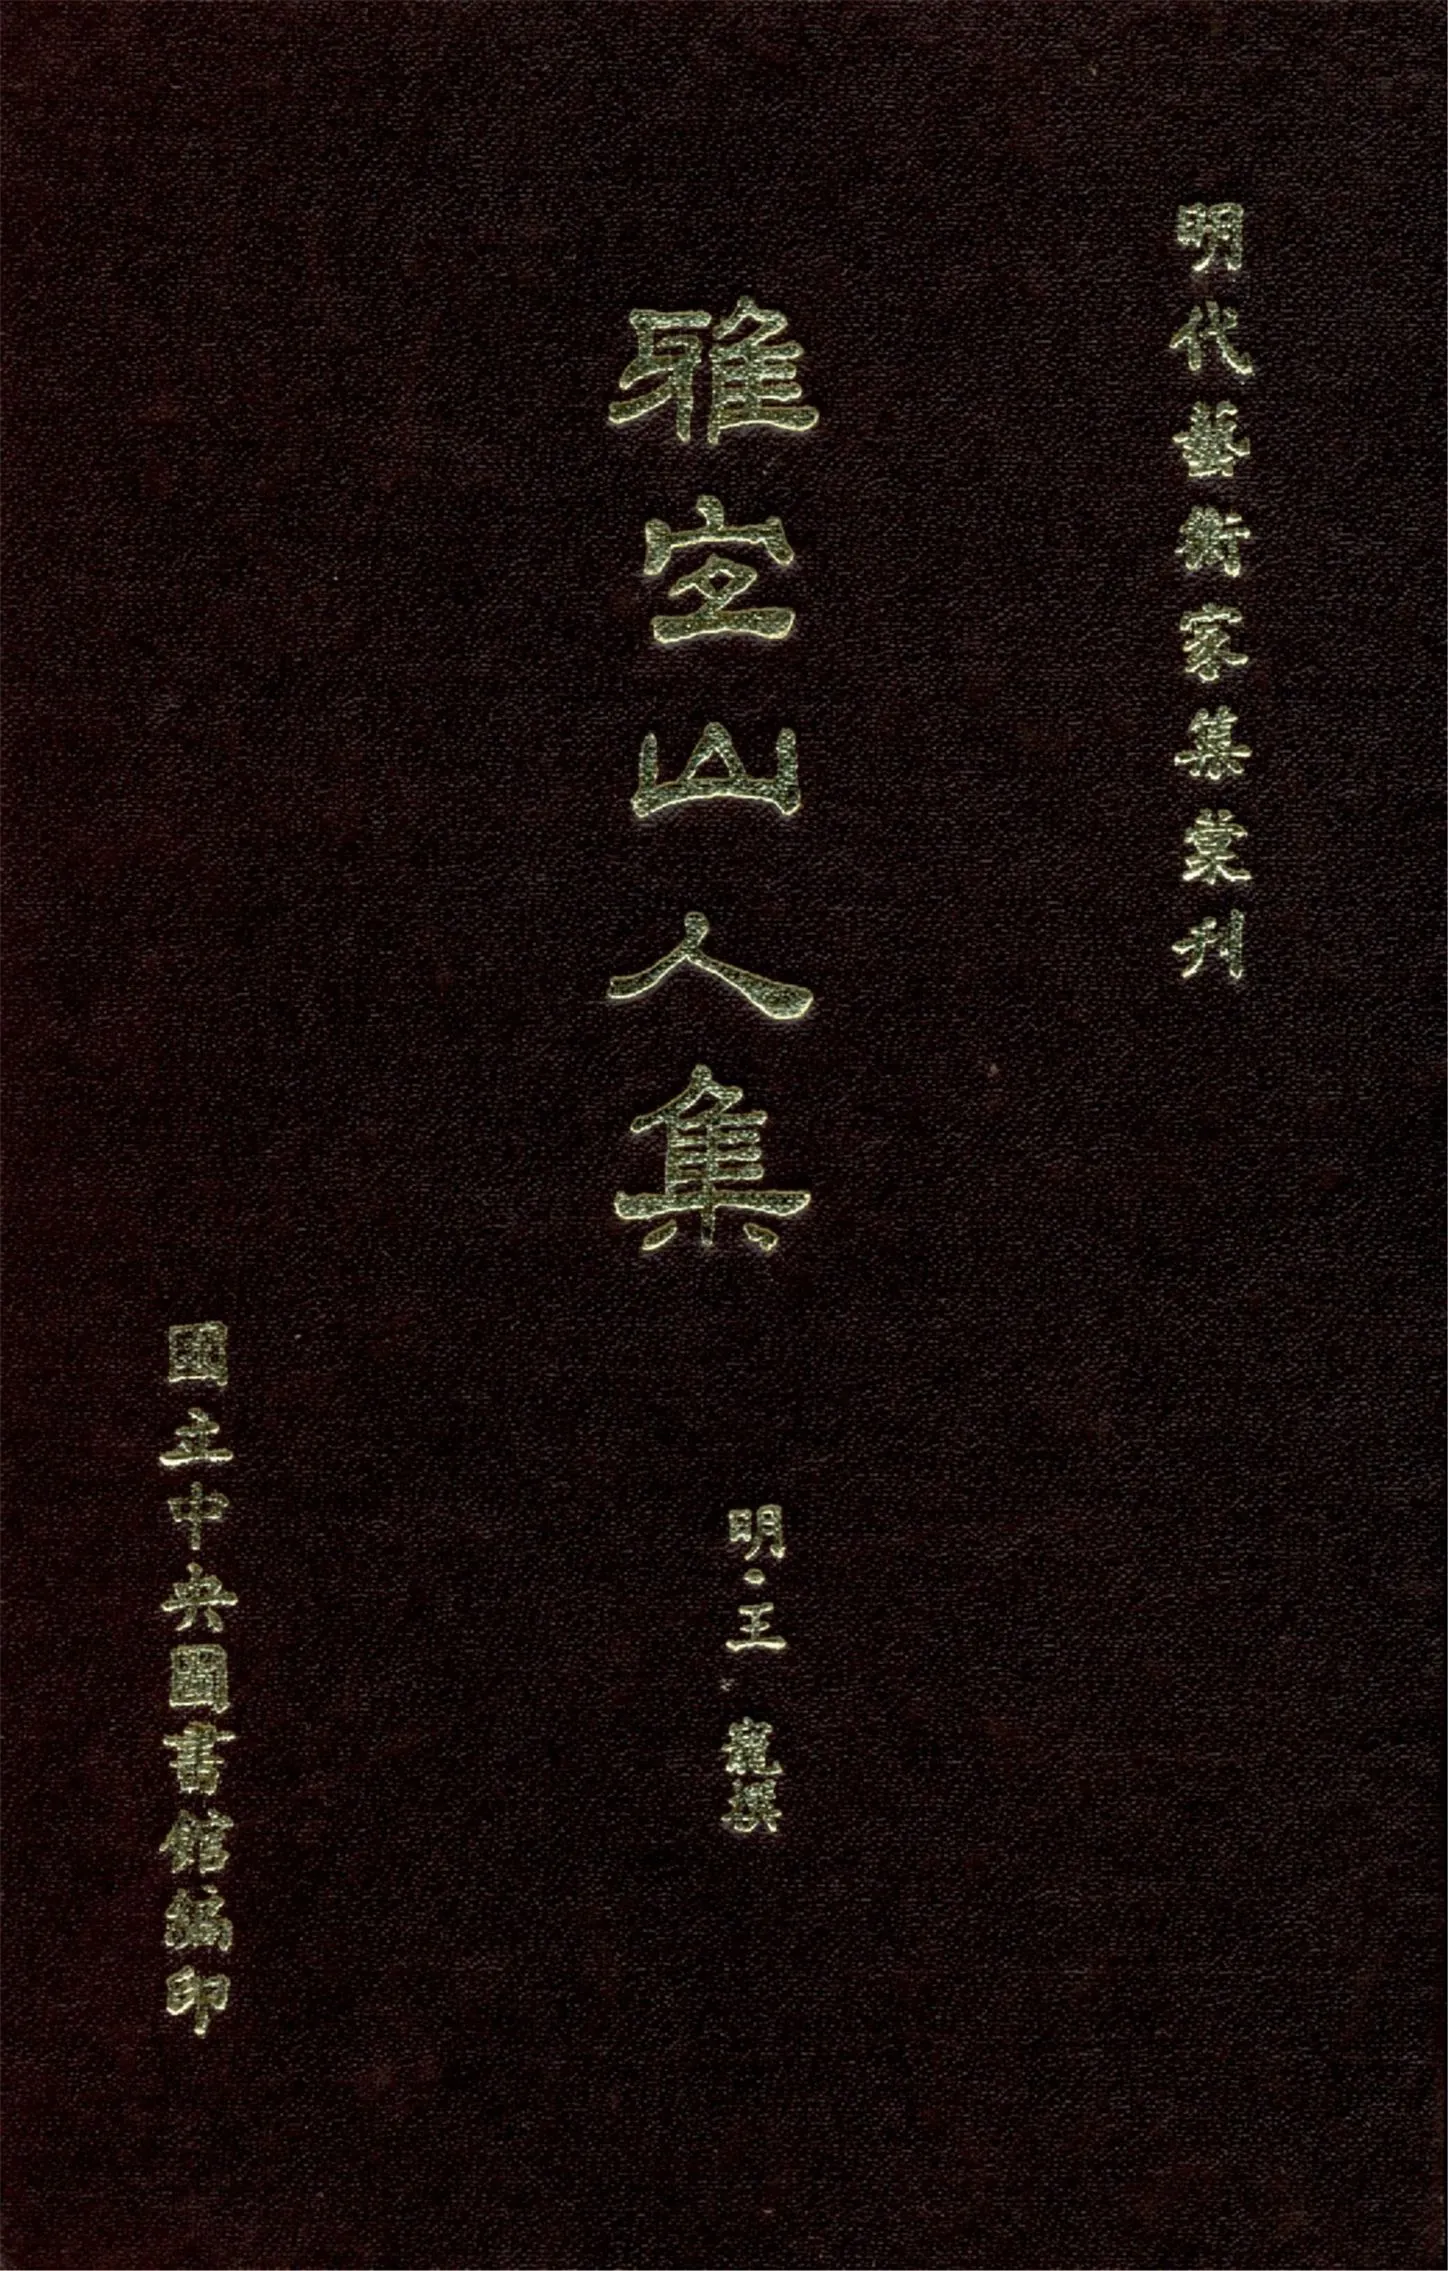 明代藝術家集彙刊
雅宜山人集
明·王寵撰
國立中央圖書館編印